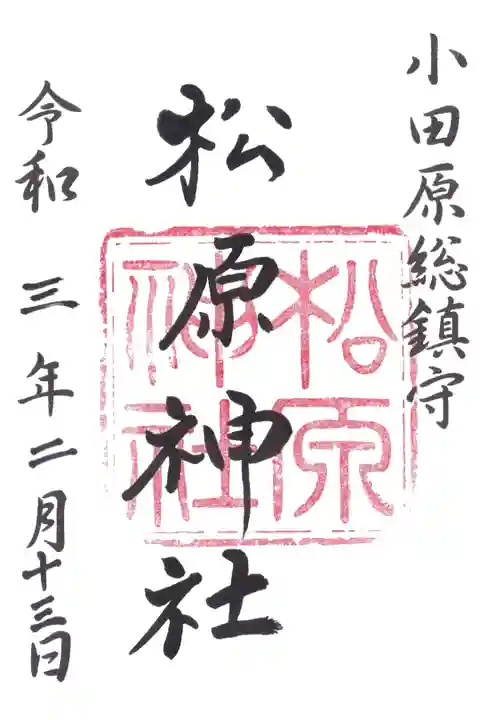 小田原総鎮守
松原神社
松原神社
令和三年二月十三日